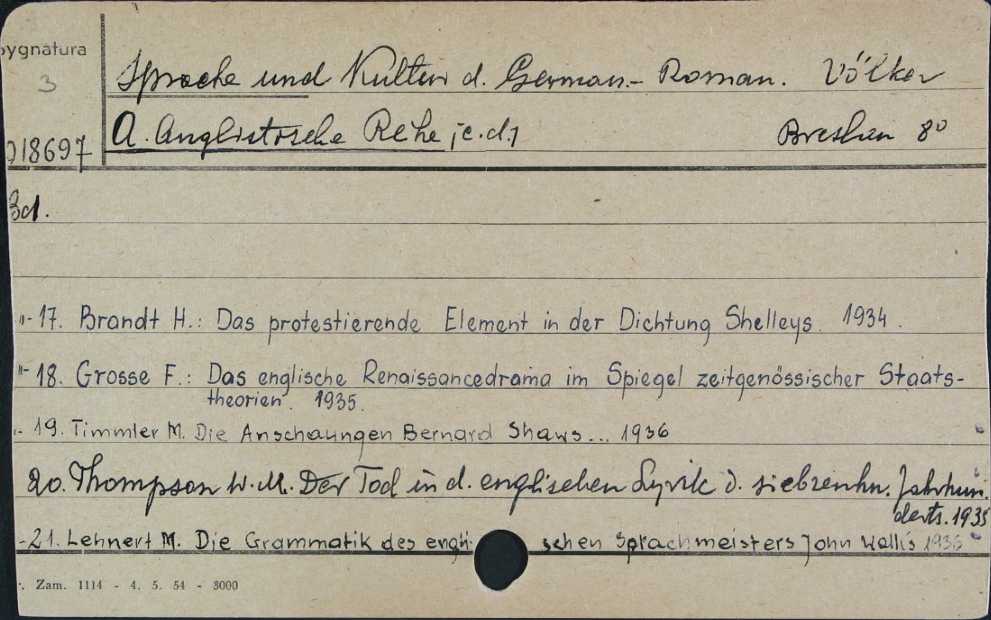 Sygnatura
3
Sprache und Kultur d. German.- Roman. Völker
A. Anglistische Reihe /c.d./ Breslau 8°
018697
Bd.
"- 17. Brandt H.: Das protestierende Element in der Dichtung Shelleys. 1934.
"- 18. Grosse F.: Das englische Renaissancedrama im Spiegel zeitgenössischer Staats-
theorien. 1935.
"- 19. Timmler M. Die Anschauungen Bernard Shaws... 1936
20. Thompson W.M. Der Tod in d. englischen Lyrik d. siebzenhn. Jahrhun.
derts. 1935
-21. Lehnert M. Die Grammatik des engli schen Sprachmeisters John Wallis 1936
Zam. 1114 - 4. 5. 54 - 3000